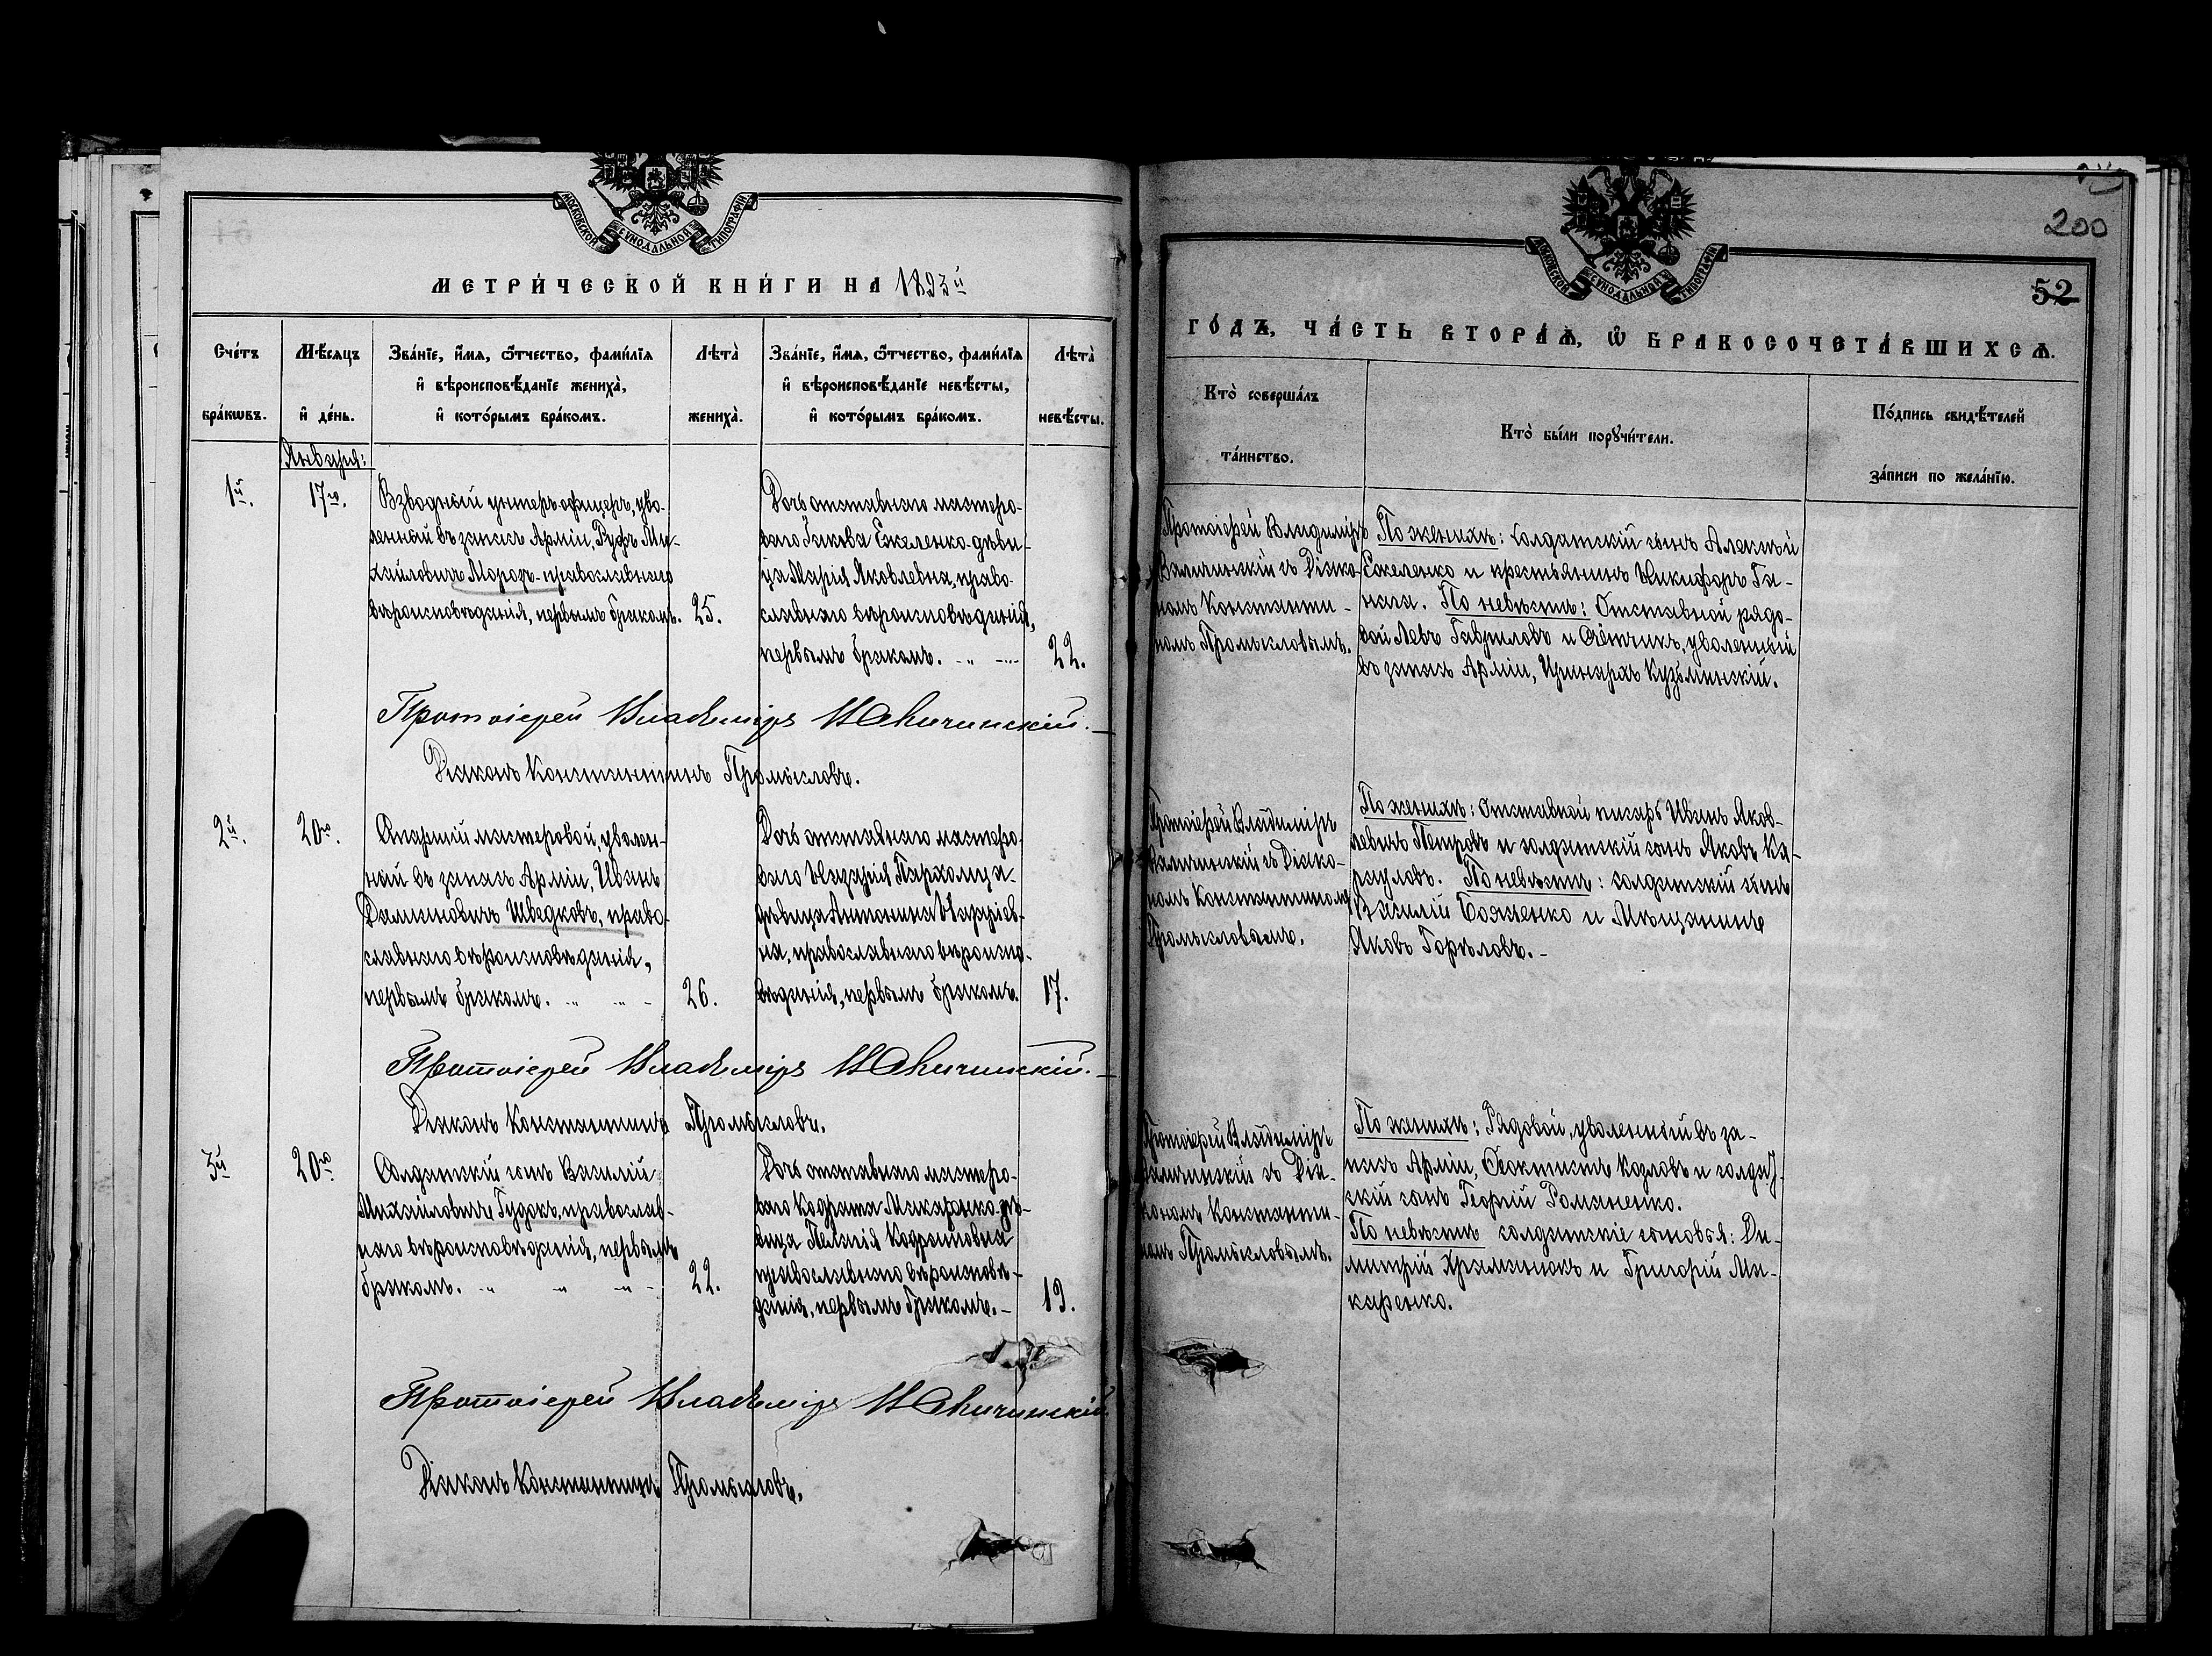 МОСКОВСКОЙ СѴНОДАЛЬНОЙ ТИПОГРАФІИ
МЕТРИ́ЧЕСКОЙ КНИ́ГИ НА 1893й
Сче́тъ бра́кѡвъ.
Мѣ́сяцъ и҆ де́нь.
Зва́нїе, и҆́мѧ, ѻ҆́тчество, фами́лїѧ
и҆ вѣроисповѣ́данїе жениха̀,
и҆ кото́рымъ бра́комъ.
Лѣта̀ жениха̀.
Зва́нїе, и҆́мѧ, ѻ҆́тчество, фами́лїѧ
и҆ вѣроисповѣ́данїе невѣ́сты,
и҆ кото́рымъ бра́комъ.
Лѣта̀ невѣ́сты.
Января:
1й.
17го.
Взводный унтеръ-офицеръ, уво-
ленный въ запасъ Арміи, Руфъ Ми-
хайловичъ Морозъ - православнаго
вѣроисповѣданія, первымъ бракомъ.
25.
Дочь отставнаго мастеро-
ваго Іакова Ежеленко - дѣви-
ца Марія Яковлевна, право-
славнаго вѣроисповѣданія,
первымъ бракомъ.
22.
Протоіерей Владиміръ
Діаконъ Константинъ Промысловъ.
2й.
20го.
Старшій мастеровой, уволен-
ный въ запасъ Арміи, Иванъ
Даміановичъ Шведковъ, право-
славнаго вѣроисповѣданія,
первымъ бракомъ.
26.
Дочь отставнаго мастеро-
ваго Назарія Пархомца -
дѣвица Антонина Назріев-
на, православнаго вѣроиспо-
вѣданія, первымъ бракомъ.
17.
Протоіерей Владиміръ
Діаконъ Константинъ Промысловъ.
3й
20го
Солдатскій сынъ Василій
Михайловичъ Гудокъ, православ-
наго вѣроисповѣданія, первымъ
бракомъ.
22.
Дочь отставнаго мастеро-
ваго Кодрата Макаренко - дѣ-
вица Пелагія Кодратовна
православнаго вѣроисповѣ-
данія, первымъ бракомъ. -
19.
Протоіерей Владиміръ
Діаконъ Константинъ Промысловъ.
200
52
МОСКОВСКОЙ СѴНОДАЛЬНОЙ ТИПОГРАФІИ
ГО́ДЪ, ЧА́СТЬ ВТОРА́Ѧ, Ѡ҆ БРАКОСОЧЕТА́ВШИХСѦ.
Кто̀ соверша́лъ та́инство.
Кто̀ бы́ли порꙋчи́тели.
По́дпись свидѣ́телей за́писи по жела́нїю.
Протоіерей Владиміръ
съ Діако-
номъ Константи-
номъ Промысловымъ.
По женихѣ: солдатскій сынъ Алексѣй
Ежеленко и крестьянинъ Никифоръ Га-
. По невѣстѣ: Отставной рядо-
вой Левъ Гавриловъ и Счётчикъ, уволенный
въ запасъ Арміи, Кузьминскій.
Протоіерей Владиміръ
съ Діако-
номъ Константиномъ
Промысловымъ.
По женихѣ: отставной писарь Иванъ Яков-
левичъ Петровъ и солдатскій сынъ Яковъ Ка-
рауловъ. По невѣстѣ: солдатскій сынъ
Василій Бояченко и Мѣщанинъ
Яковъ Горѣловъ. -
Протоіерей Владиміръ
съ Діа-
кономъ Константи-
номъ Промысловымъ.
По женихѣ: Рядовой, уволенный въ за-
пасъ Арміи, Ѳеоктистъ Козловъ и солдат-
скій сынъ Георгій Романенко.
По невѣстѣ солдатскіе сыновья: Ди-
митрій и Григорій Ма-
каренко.